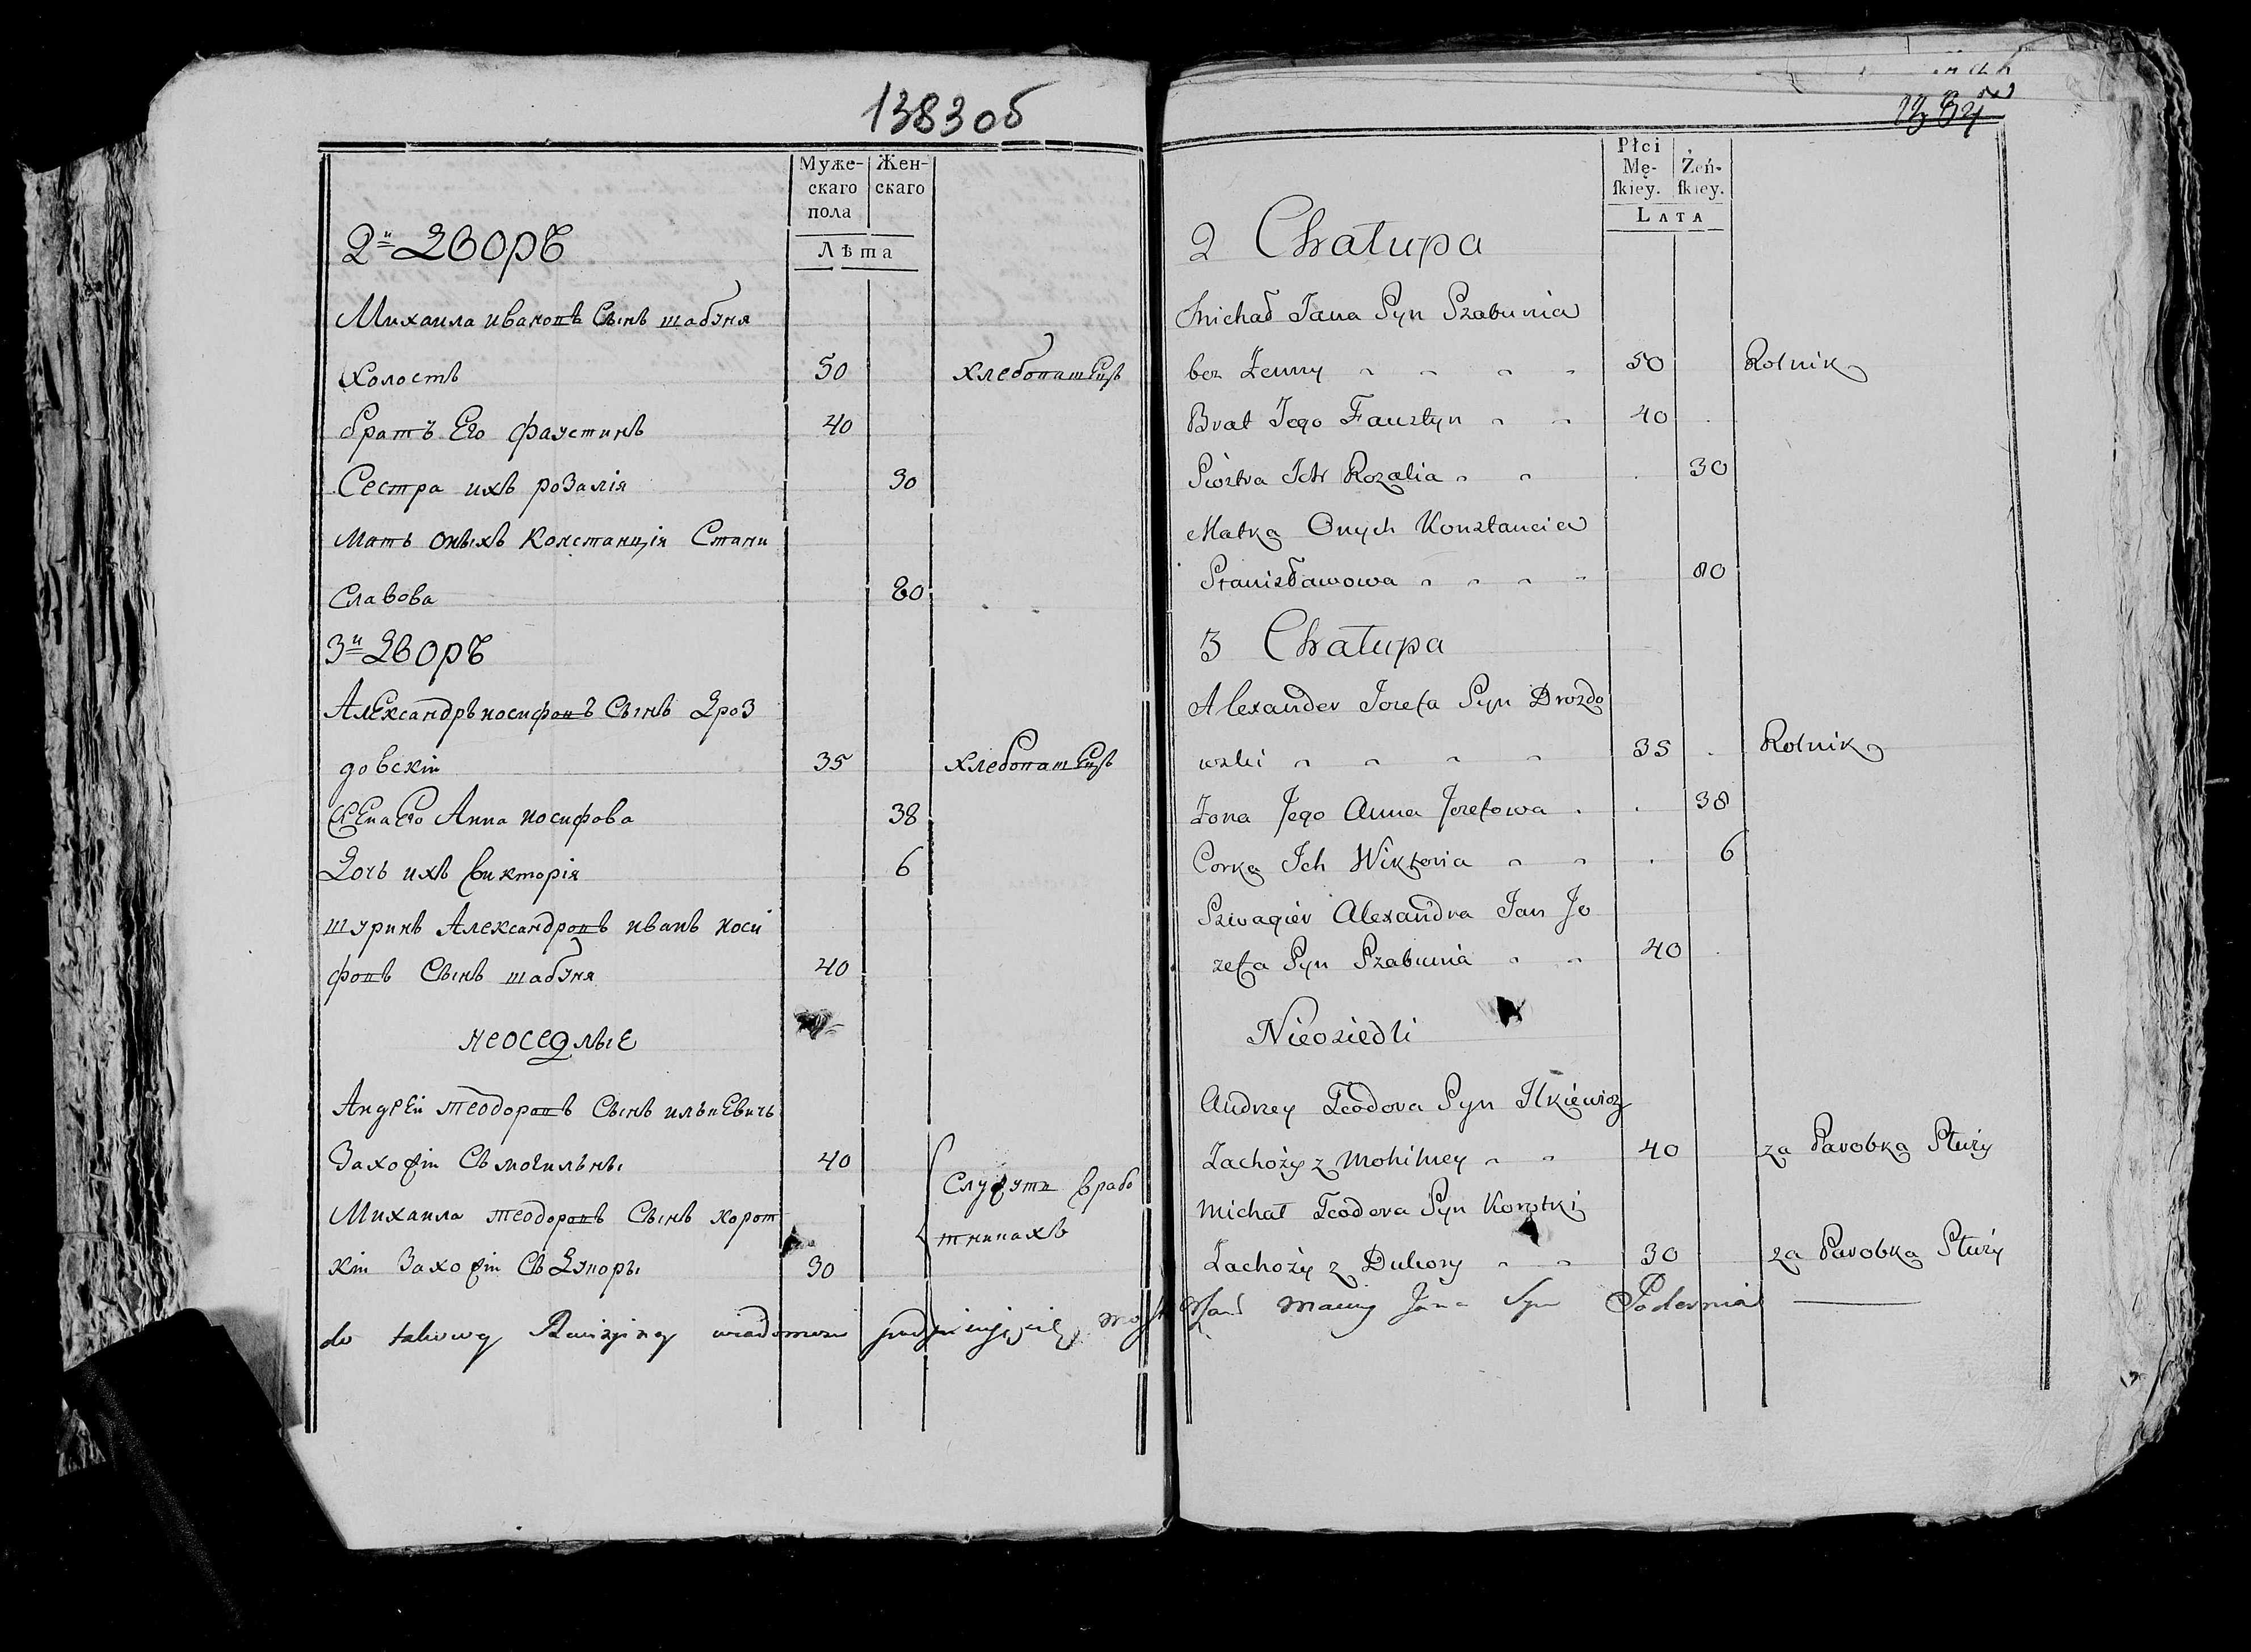 1383об
Муже-
скаго
пола
Жен-
скаго
Лѣта
2й Дворъ
Михаила Ивановъ Сынъ Шабуня
Холостъ 50 хлебопашецъ
братъ Его Фаустинъ 40
Сестра ихъ Розалія 30
Мать оныхъ Констанція Стани
славова 80
3й Дворъ
Александръ Иосифовъ Сынъ Дроз
довскій 35 хлебопашецъ
Жена Его Анна Иосифова 38
Дочь ихъ Викторія 6
Шуринъ Александровъ Иванъ Иоси
фовъ Сынъ Шабуня 40
неоседлые
Андрей Теодоровъ Сынъ Илькевичь
Захожій Съ Могильны 40
Служутъ в рабо
Михаила Теодоровъ Сынъ Корот
тникахъ
кій Захожій Съ Дупоры 30
do takowey wiadomosci
Płci
Mę-
ſkiey.
Żeń-
ſkiey.
LATA
2 Chałupa
Michał Jana Syn Szabunia
bez Zenny 50 Rolnik
Brat Jego Fausztyn 40
Siostra Ich Rozalia 30
Matka Onych Konstancia
Stanisławowa 80
3 Chałupa
Alexander Jozefa Syn Drozdo
wski 35 Rolnik
Zona Jego Anna Jozefowa 38
Corka Ich Wiktoria 6
Szwagier Alexandra Jan Jo
zefa Syn Szabunia 40
Nieosiedli
Andrzey Teodora Syn Ilkiewicz
Zachoży z Mohilney 40 za Parobka Służy
Michał Teodora Syn Korotki
Zachoży z Dubory 30 za Parobka Służy
Jana Syn